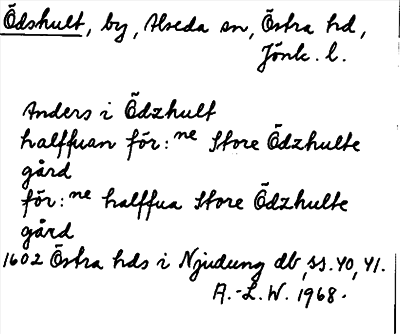 Ödshult, by, Alseda sn, Östra hd,
Jönk. l.
Anders i Ödzhult
halffuan för:ne Store Ödzhulte
gård
för:ne halffua Store Ödzhulte
gård
1602 Östra hds i Njudung db, ss. 40, 41.
A.-L. W. 1968.